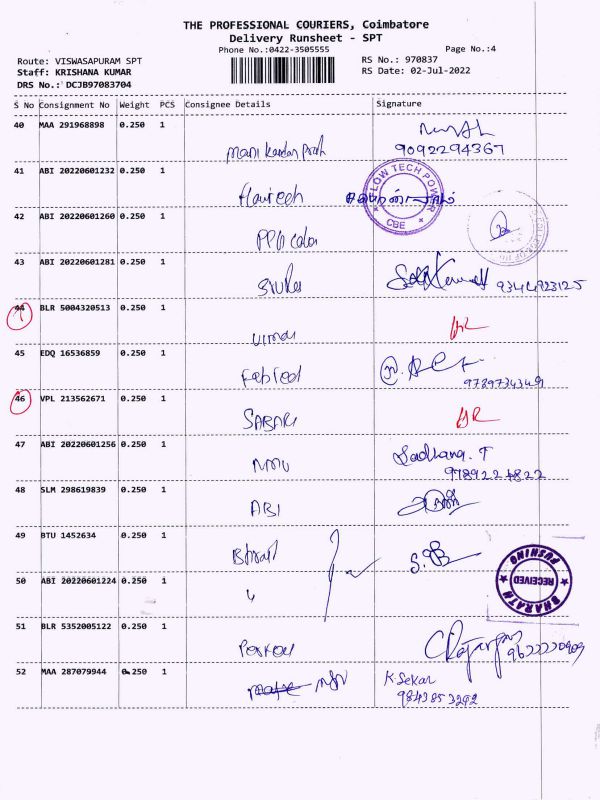 THE PROFESSIONAL COURIERS, Coimbatore
Delivery Runsheet - SPT
Phone No.:0422-3505555
Page No.:4
Route: VISWASAPURAM SPT
RS No.: 970837
Staff: KRISHANA KUMAR
RS Date: 02-Jul-2022
DRS No.: DCJB97083704
S No Consignment No Weight PCS Consignee Details Signature
40 MAA 291968898 0.250 1
9092294367
41 ABI 20220601232 0.250 1
FLOW TECH POWER
CBE
42 ABI 20220601260 0.250 1
PPG color
43 ABI 20220601281 0.250 1
9344923125
44 BLR 5004320513 0.250 1
45 EDQ 16536859 0.250 1
9789734349
46 VPL 213562671 0.250 1
SABARI
47 ABI 20220601256 0.250 1
Sadhana. T
48 SLM 298619839 0.250 1
ABI
49 BTU 1452634 0.250 1
BHARATH PUSHING
RECEIVED
50 ABI 20220601224 0.250 1
51 BLR 5352005122 0.250 1
52 MAA 287079944 0.250 1
K. Sekar
9843853292